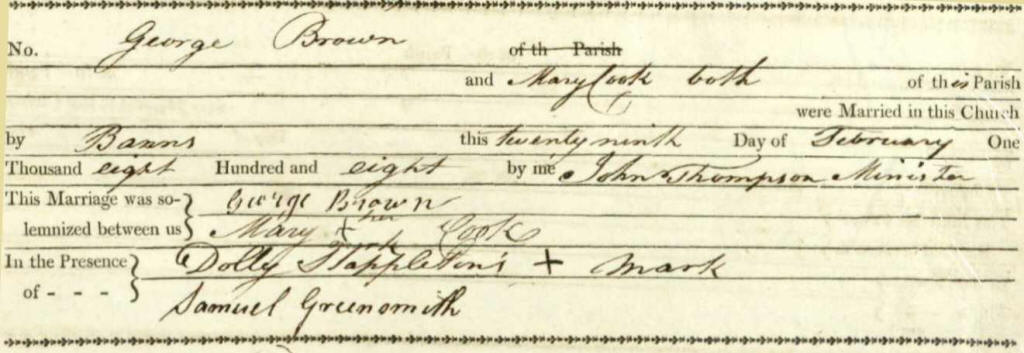 No. George Brown of th Parish
and Mary Cook both of this Parish
were Married in this Church
by Banns this twenty ninth Day of February One
Thousand eight Hundred and eight by me John Thompson Minister
This Marriage was so- George Brown
her
lemnized between us Mary + Cook
mark
In the Presence Dolly Stappleton's + mark
of - - - Samuel Greensmith